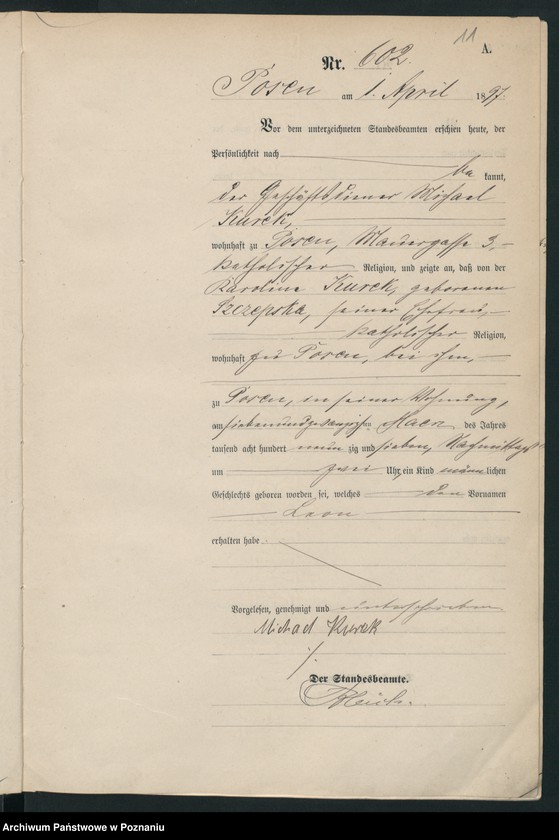 11
A.
Nr. 602.
Posen am 1. April 1897.
Vor dem unterzeichneten Standesbeamten erschien heute, der
Persönlichkeit nach
be kannt,
der Geschäftsdiener Michael
Kurek,
wohnhaft zu Posen, Mauergasse 3,
katholischer Religion, und zeigte an, daß von der
Karoline Kurek, geborenen
Szczepska, seiner Ehefrau,
katholischer Religion,
wohnhaft zu Posen, bei ihm,
zu Posen, in seiner Wohnung,
am siebenundzwanzigsten Maerz des Jahres
tausend acht hundert neun zig und sieben, Nachmittags
um zwei Uhr, ein Kind männ lichen
Geschlechts geboren worden sei, welches den Vornamen
Leon
erhalten habe.
Vorgelesen, genehmigt und unterschrieben
Michael Kurek
Der Standesbeamte.
Archiwum Państwowe w Poznaniu